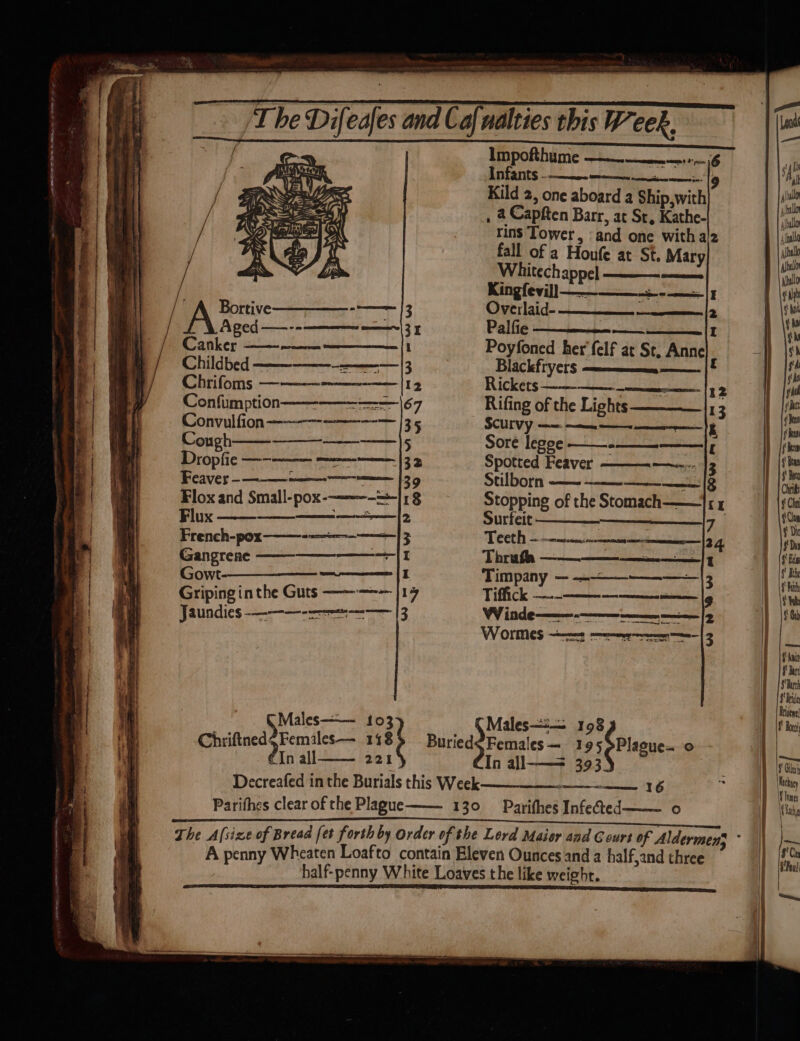 The Diſeaſes and Caſualties this Week.
Abortive 3
Aged 31
Canker 1
Childbed 3
Chriſoms 12
Conſumption 67
Convulſion 35
Cough 5
Dropſie 32
Feaver 39
Flox and Small-pox 18
Flux 2
French-pox 3
Gangrene 1
Gowt 1
Griping in the Guts 17
Jaundies 3
Impoſthume 6
Infants 9
Kild 2, one aboard a Ship, with
a Capſten Barr, at St. Kathe-
rins Tower, and one with a 2
fall of a Houſe at St. Mary
Whitechappel
Kingſevill 1
Overlaid 2
Palſie 1
Poyſoned her ſelf at St. Anne
Blackfryers 1
Rickets 12
Riſing of the Lights 13
Scurvy
Sore legge 1
Spotted Feaver 3
Stilborn 8
Stopping of the Stomach 11
Surfeit 7
Teeth 24
Thruſh 1
Timpany 3
Tiſſick 9
Winde 2
Wormes 3
Chriſtned Males 103 Females 118 In all 221
Buried Males 198 Females 195 In all 393 Plague 0
Decreaſed in the Burials this Week 16
Pariſhes clear of the Plague 130 Pariſhes Infected 0
The Aſsize of Bread ſet forth by Order of the Lord Maior and Court of Aldermen,
A penny Wheaten Loaf to contain Eleven Ounces and a half, and three
half-penny White Loaves the like weight.